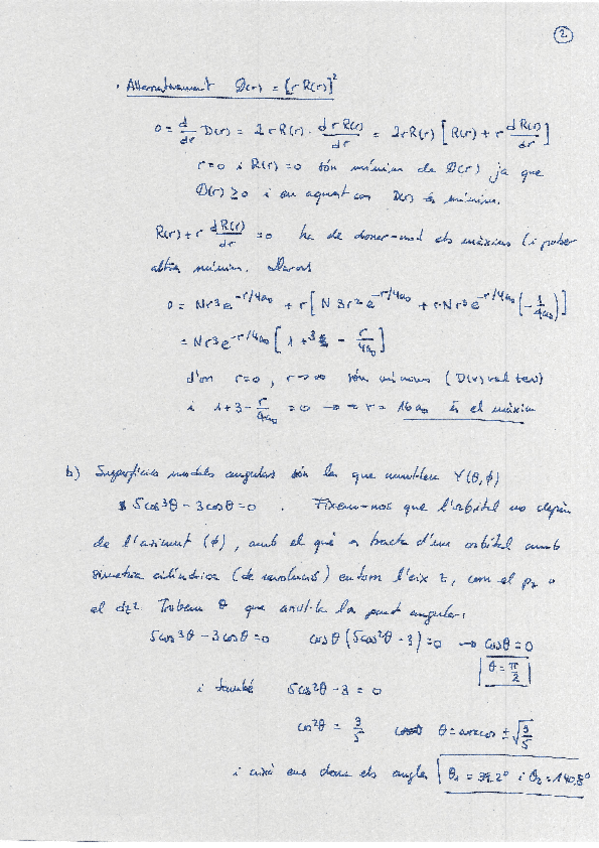 2
· Alternativament D(r) = [r R(r)]²
0 = d/dr D(r) = 2 r R(r) · d r R(r)/dr = 2 r R(r) [R(r) + r dR(r)/dr]
r=0 i R(r)=0 són mínims de D(r) ja que
D(r) ≥ 0 i en aquest cas D(r) és mínim.
R(r) + r dR(r)/dr = 0 ha de donar-nos els màxims (i potser
altres mínims.
0 = Nr³e^(-r/4a₀) + r [N 3r² e^(-r/4a₀) + Nr³e^(-r/4a₀) (-1/4a₀)]
= Nr³e^(-r/4a₀) [1 + 3 - r/4a₀]
d'on r=0, r→∞ són mínims (D(r) val zero)
i 1+3 - r/4a₀ = 0 → r = 16a₀ és el màxim
b) Superfícies nodals angulars són les que anul·len Y(θ,ϕ)
5cos³θ - 3cosθ = 0 . Fixem-nos que l'orbital no depèn
de l'azimut (ϕ), amb el què es tracta d'un orbital amb
simetria cilíndrica (de revolució) entorn l'eix z, com el pz o
el dz². Trobem θ que anul·la la part angular:
5cos³θ - 3cosθ = 0 cosθ (5cos²θ - 3) = 0 → cosθ = 0
θ = π/2
i també 5cos²θ - 3 = 0
cos²θ = 3/5 θ = arccos ±√(3/5)
i això ens dona els angles θ₁ = 39.2° i θ₂ = 140.8°